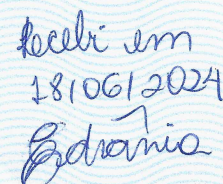 Recebi em
18/06/2024
Edrânia